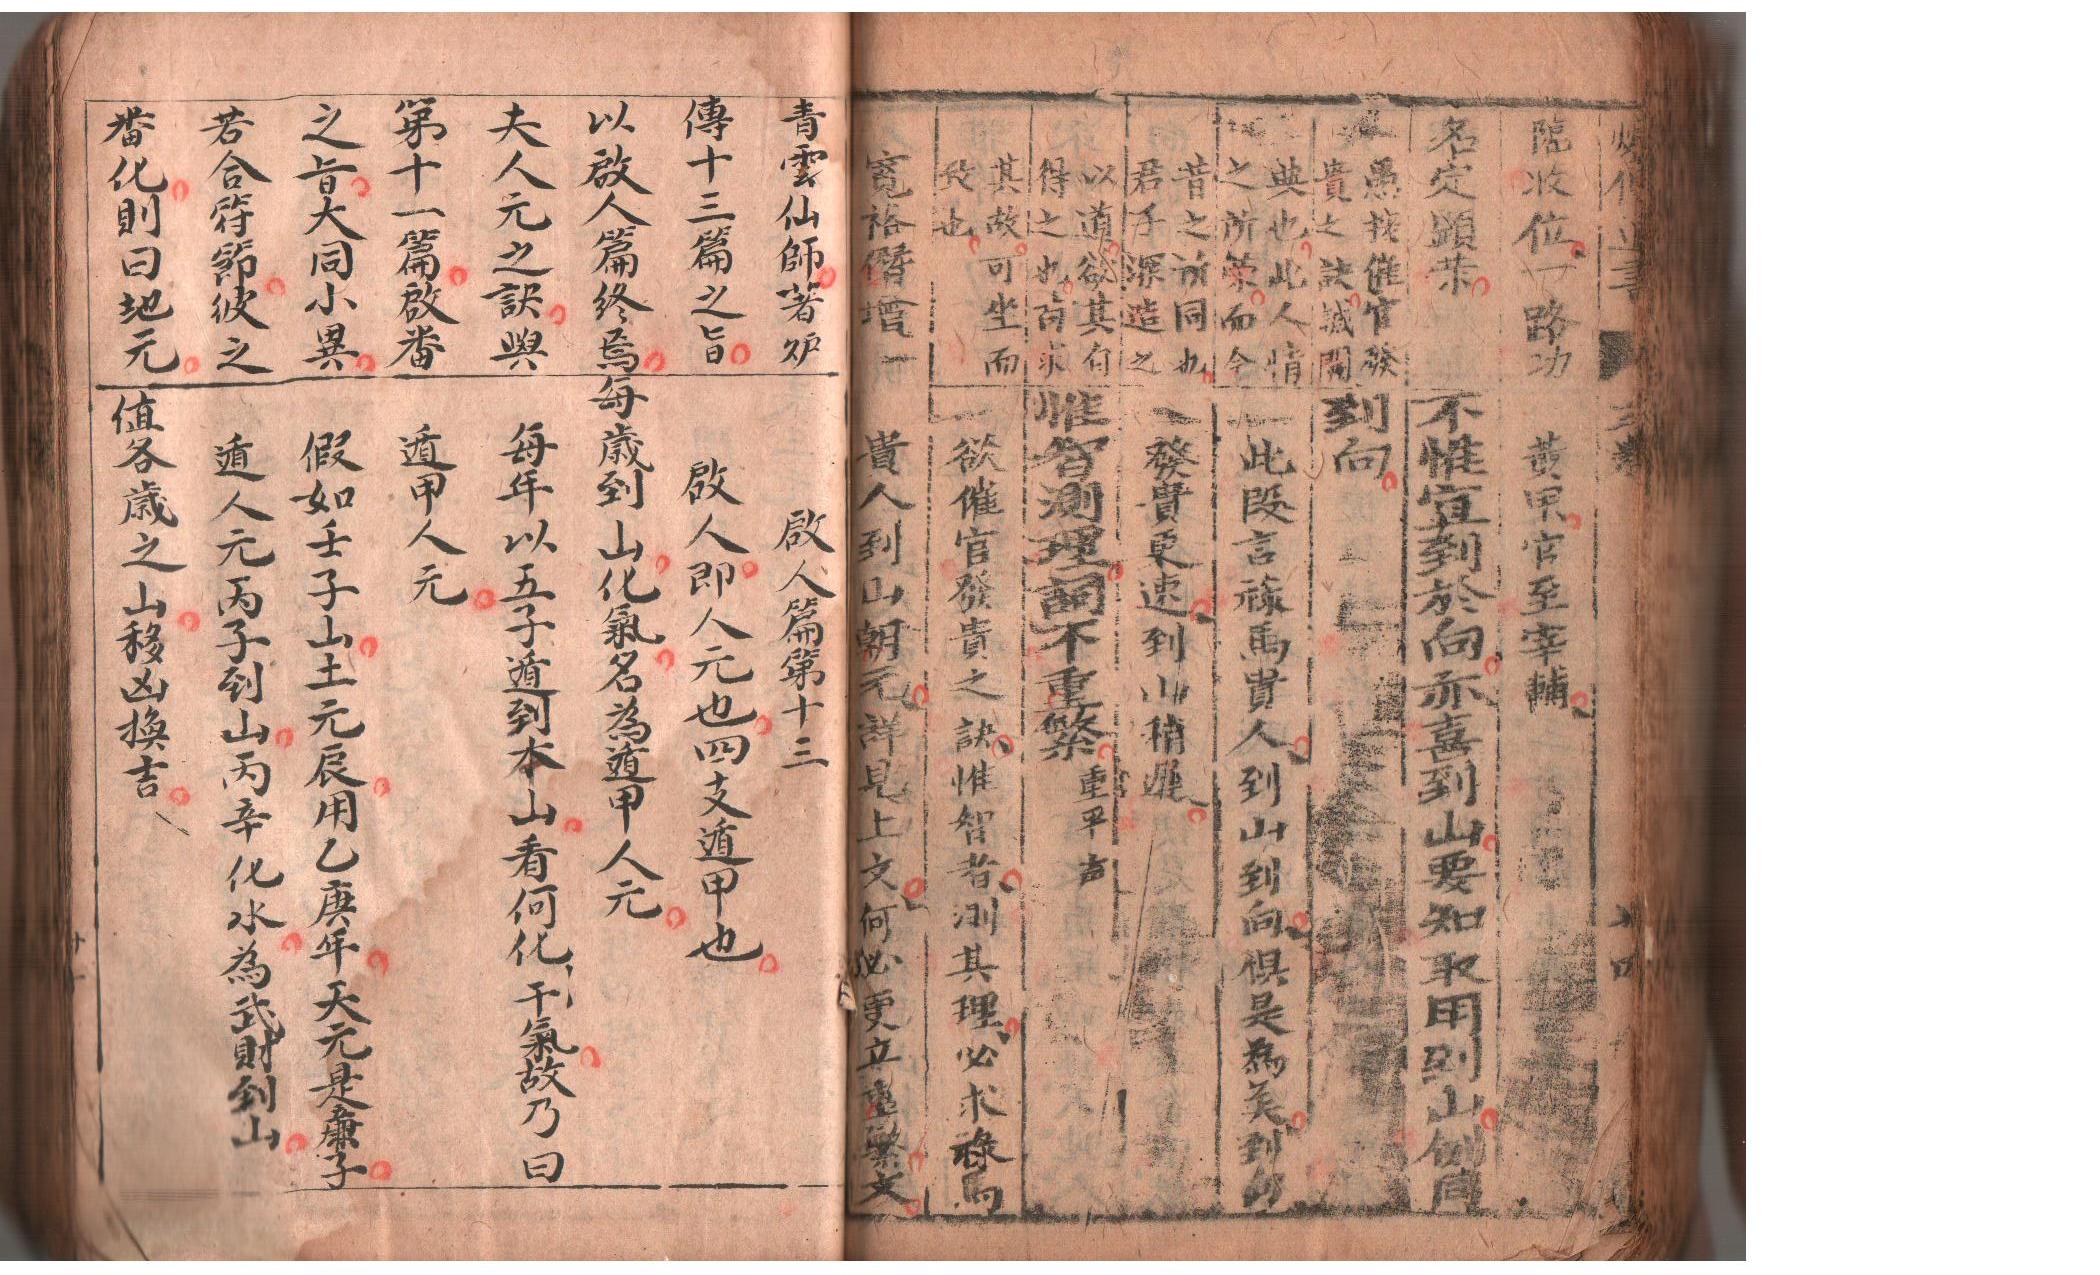 臨收位一路功
名定顯榮
愚按催官發
貴之訣誠闡
典也此人情
之所榮而今
昔之所同也
君子深造之
以道欲其自
得之也苟求
其故可坐而
致也
寬裕
黃甲官至宰輔
不惟宜到於向亦喜到山要知取用到山例同
到向
一此段言祿馬貴人到山到向俱是為美到向
一發貴更速到山稍遲
惟智測理詞不重繁重平声
一欲催官發貴之訣惟智者測其理必求祿馬
貴人到山朝元詳見上文何必更立重繁文
青雲仙師著妒
傳十三篇之旨
以啟人篇終焉
夫人元之訣與
第十一篇啟畨
之旨大同小異
若合符節彼之
畨化則曰地元
啟人篇第十三
啟人即人元也四支遁甲也
每歲到山化氣名為遁甲人元
每年以五子遁到本山看何化干氣故乃曰
遁甲人元
假如壬子山土元辰用乙庚年天元是庚子
遁人元丙子到山丙辛化水為武財到山
值各歲之山移凶換吉